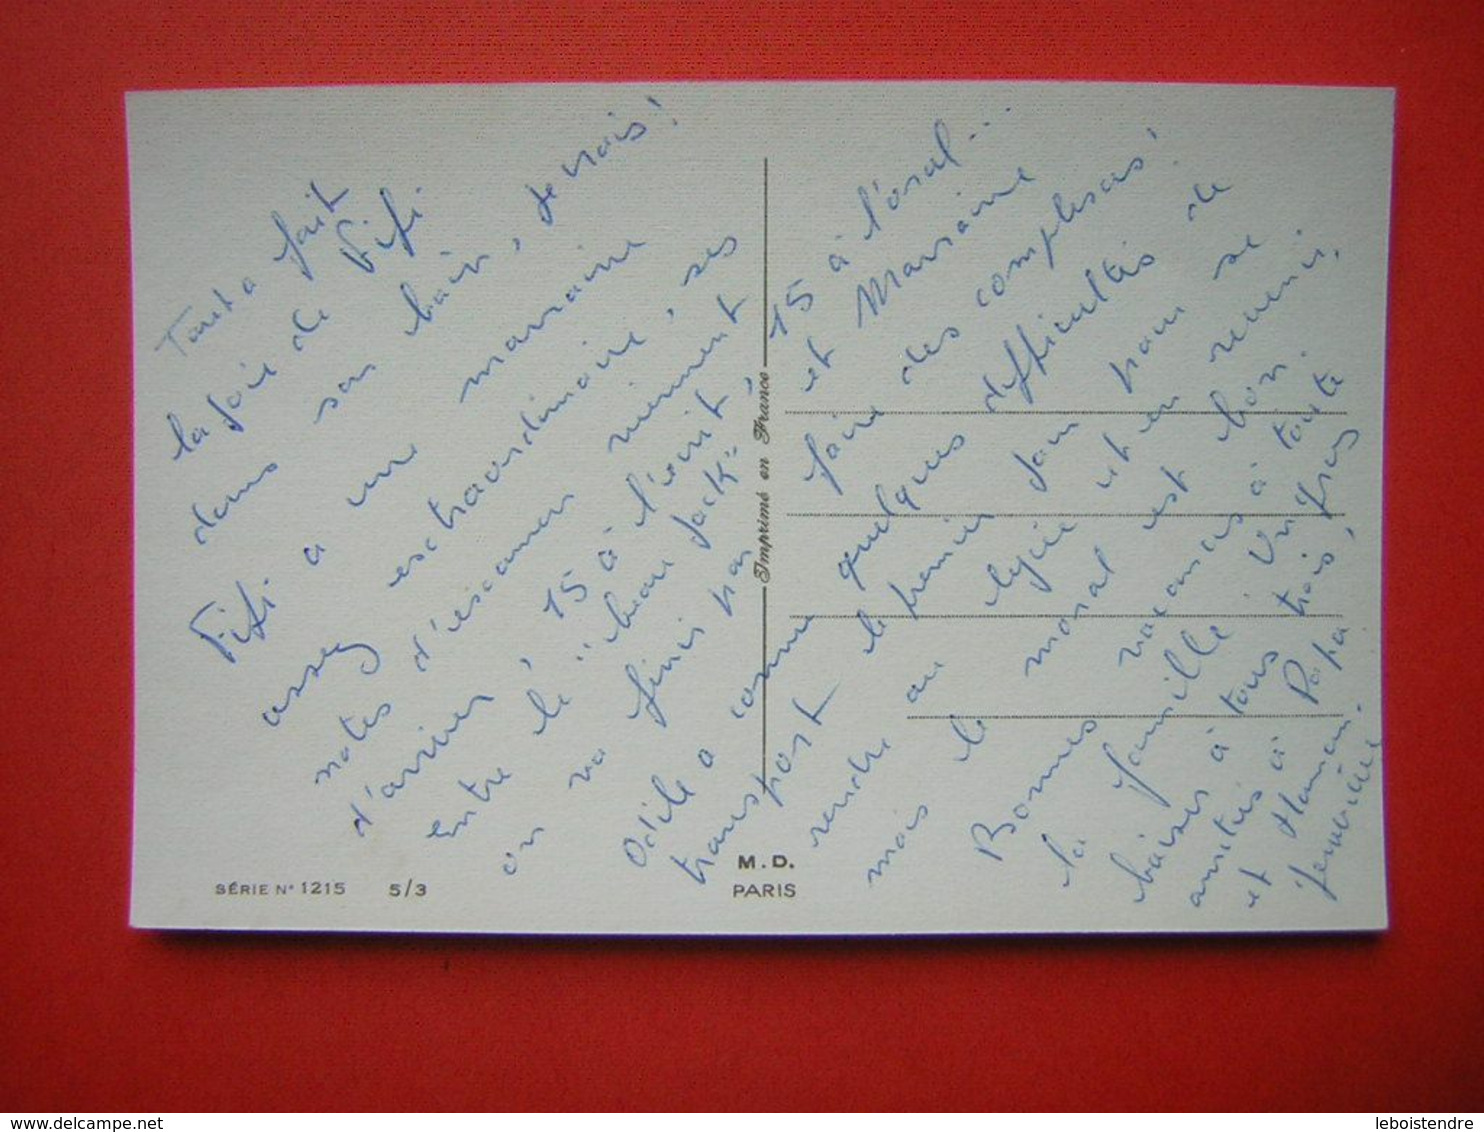 Tout a fait
la joie de Fifi
dans son bain, je vois!
Fifi a une marraine
assez extraordinaire, ses
notes d'examen viennent
d'arriver, 15 à l'écrit,
15 à l'oral...
Entre le "beau Jack"
et Marraine
on va finir par
faire des complexes!
Odile a comme quelques difficultés de
transport le premier jour pour se
rendre au lycée et en revenir,
mais le moral est bon.
Bonnes vacances à toute
la famille. Un gros
baiser à tous trois,
amitiés à Papa
et Maman.
Imprimé en France
SÉRIE N° 1215 5/3
M.D.
PARIS
leboistendre